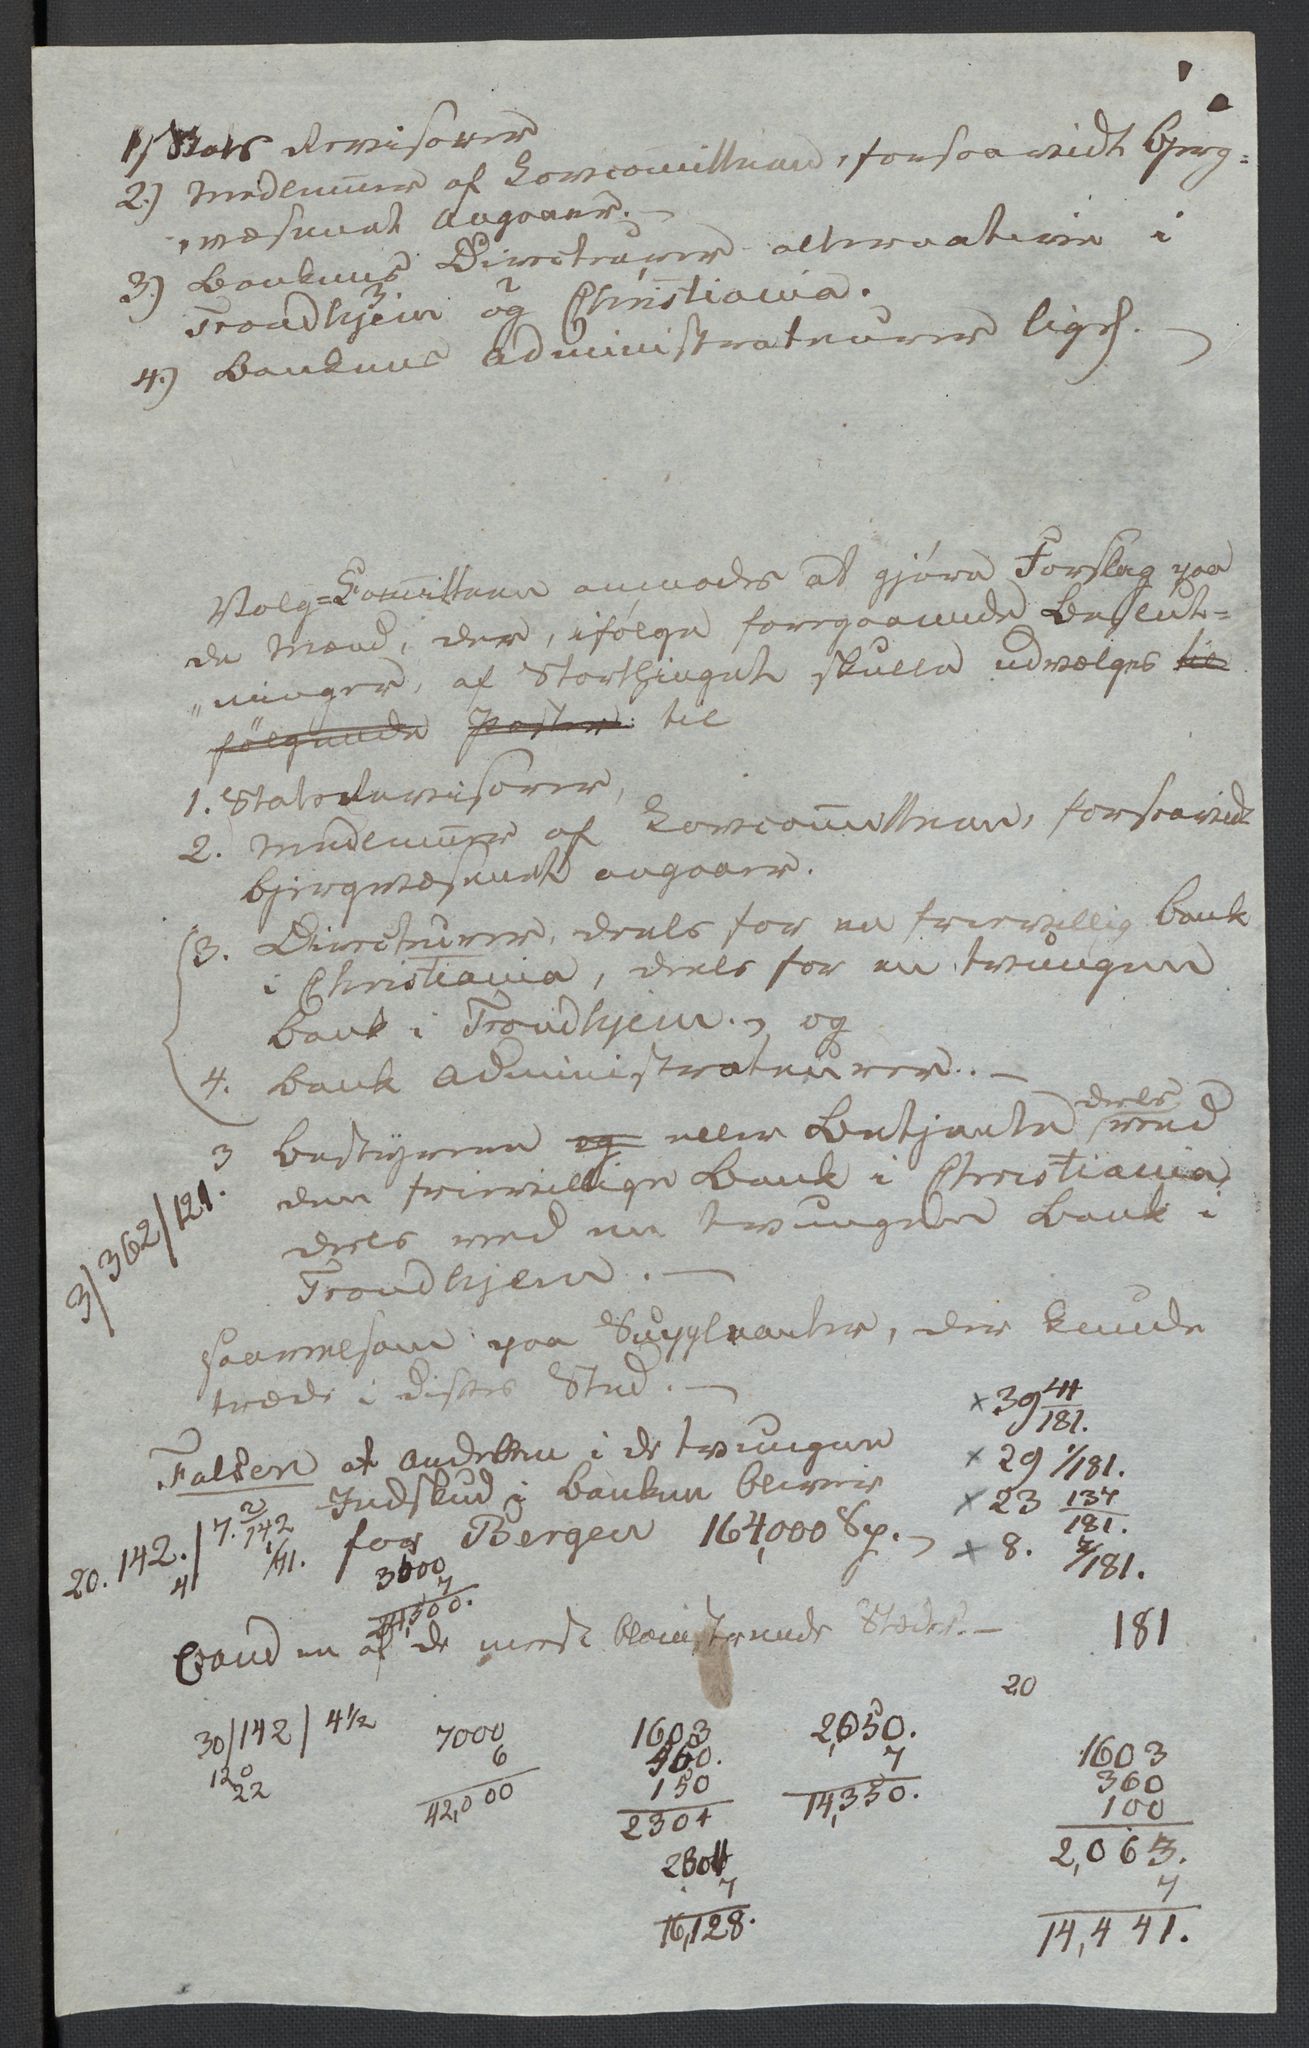 1) Stats Revisorer
2.) Medlemmer af Lovcomitteen, forsaavidt Bjerg=
væsenet angaaer. —
3.) Bankens Directeurer alternative i
Trondhjem og Christiania.
4.) Bankens Administrateurer lige
Valg=Comitteen anmodes at gjöre Forslag paa
de Mænd, der, ifölge foregaaende Beslut=
"ninger, af Storthinget skulle udvælges til
fölgende Poster til
1. Statsrevisorer,
2. Medlemmer af Lovcommitteen, forsaavidt
Bjergvæsenet angaaer.
3. Directeurer, deels for en frievillig Bank
i Christiania, deels for en tvungen
Bank i Trondhjem., og
4. Bank Administrateurer. —
3 Bestyrere og eller Betjente deels ved
den frievillige Bank i Christiania,
deels ved en tvungen Bank i
Trondhjem. —
3/362/121.
saavelsom paa Suppleanter, der kunde
træde i disses Sted. —
× 39 44/181.
Falsen at Andelen i de tvungne
× 29 1/181.
Indskud i Banken bliver
× 23 137/181.
for Bergen 164,000 Sp.
× 8. 7/181.
20.142./7.2
4
142
1/71.
3000
7
181
en af de meest blomstrende Stæder. —
20
30/142/4½
120
22
7000
6
42,000
1603
150
2304
2304
7
16,128.
2,050.
7
14,350.
1603
360
100
2,063.
7
14,441.